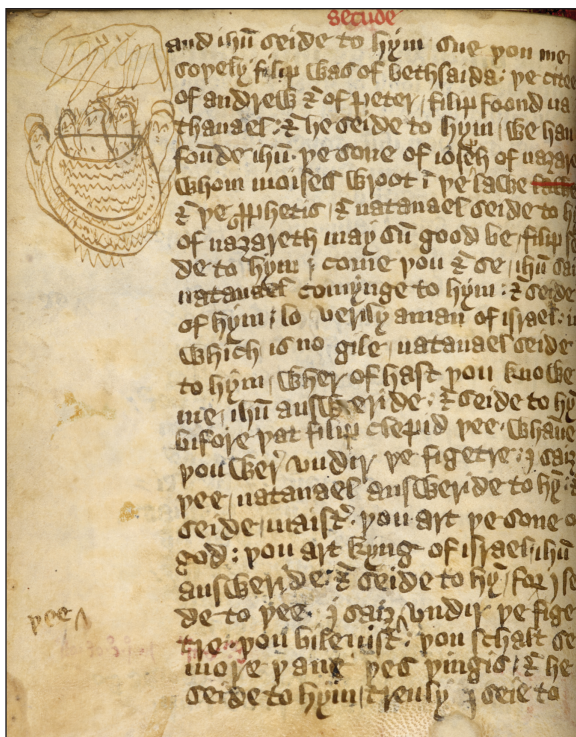 secūde
and ihū seide to hym sue þou me
soþely filip was of bethsaida: þe citee
of andrew & of peter / filip foond na
thanael: & he seide to hym / we han
founde ihū þe sone of ioseph of nazare
whom moises wroot ī þe lawe
& þe ꝓphetis / & natanael seide to h
of nazareth may sū good be / filip s
de to hym / come þou & se / ihū sai
natanael comynge to hym: & seide
of hym / lo verily aman of israel: i
which is no gile / natanael seide
to hym / wher of hast þou knowe
me / ihū answeride: & seide to hȳ
bifore þat filip clepid þee / whane
þou wer vndir þe figetre: I saiȝ
þee / natanael answeride to hȳ: &
seide / maistˀ þou art þe sone o
god: þou art kyng of israel / ihū
answeride: & seide to hȳ / for I se
de to þee I saiȝ ^ vndir þe fige
þee ^
tre / þou bileuist: þou schalt se
more þane þes þingis / & he
seide to hym / treuly I seie to